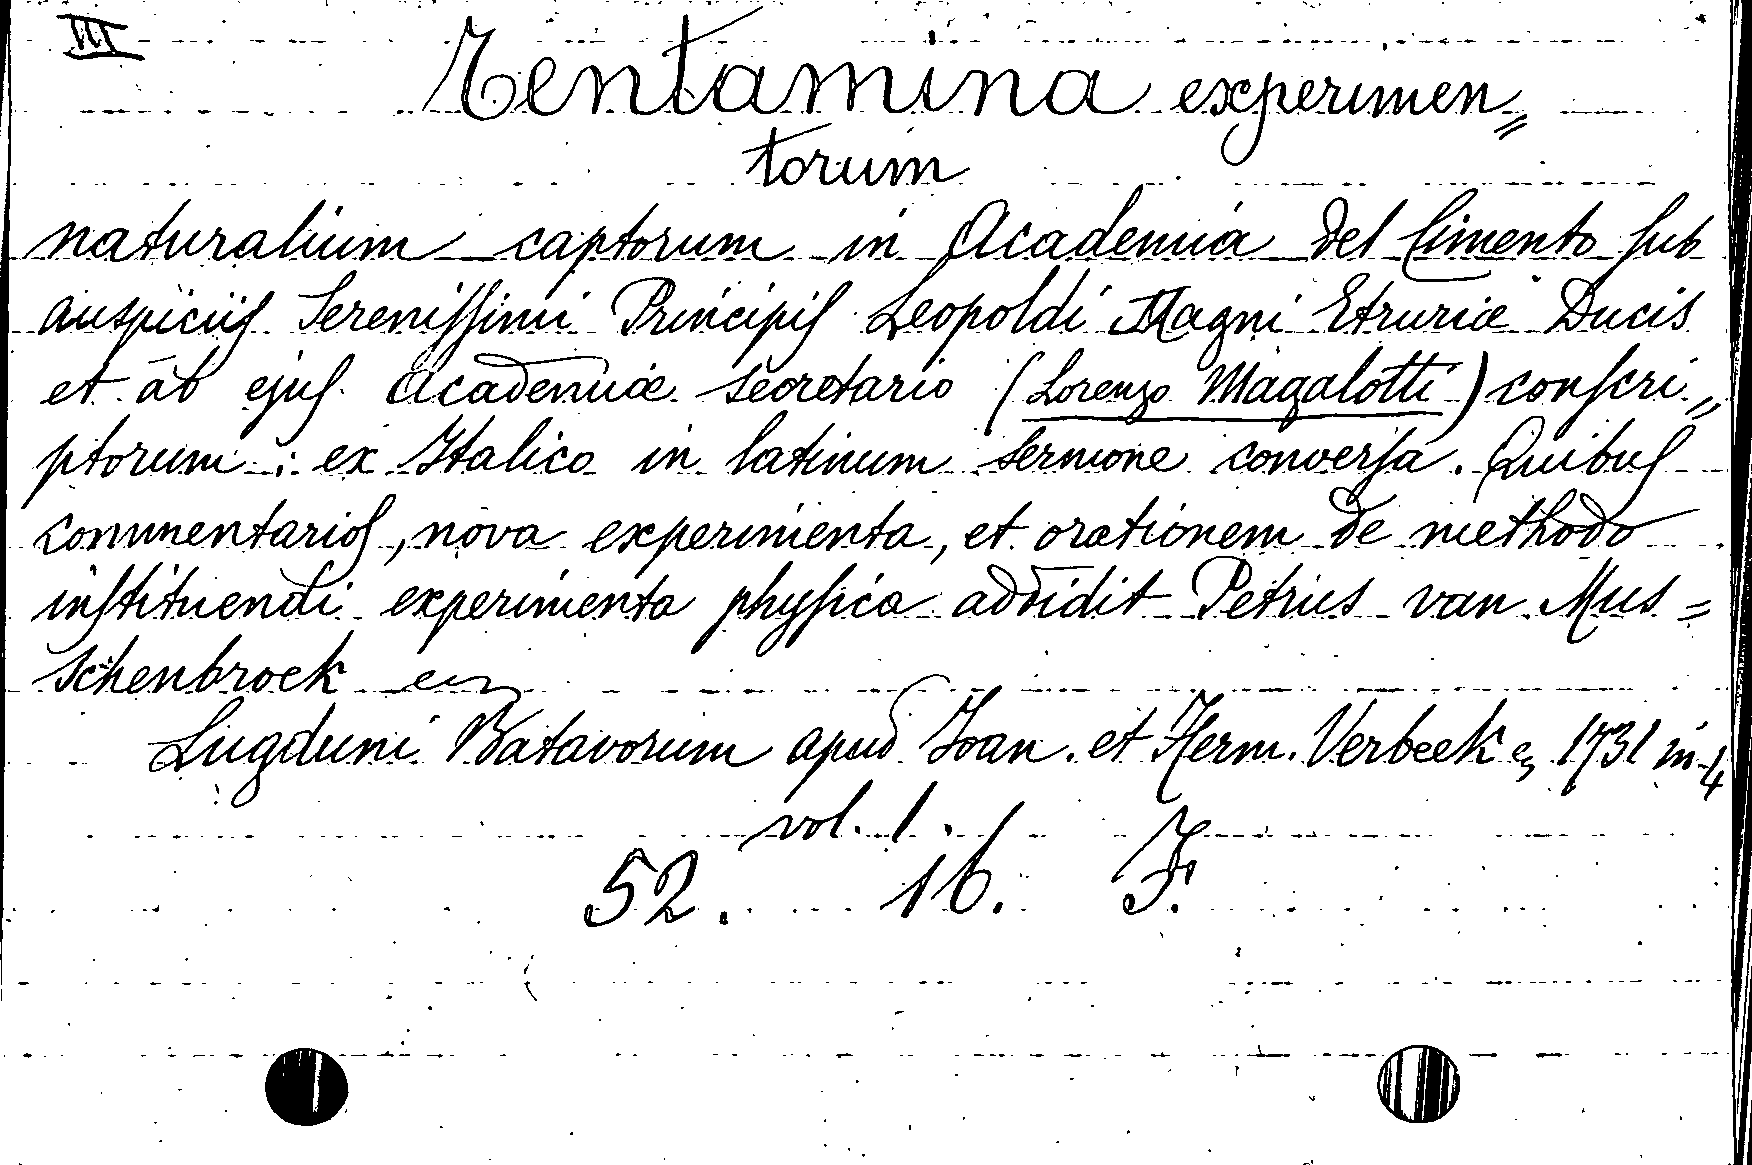 III
Tentamina experimen„
torum
naturalium captorum in Academia del Cimento ſub
auspiciiſ Sereniſſimi Principiſ Leopoldi Magni Etruriæ Ducis
et ab ejuſ Academiæ secretario (Lorenzo Magalotti) conſcri„
ptorum : ex Italico in latinum sermone converſa. Quibuſ
commentarioſ, nova experimenta, et orationem de methodo
inſtituendi experimenta phyſica addidit Petrus van Mus=
schenbroek
Lugduni Batavorum apud Joan. et Herm. Verbeek 1731 in-4
vol. 1.
52. 16. F.